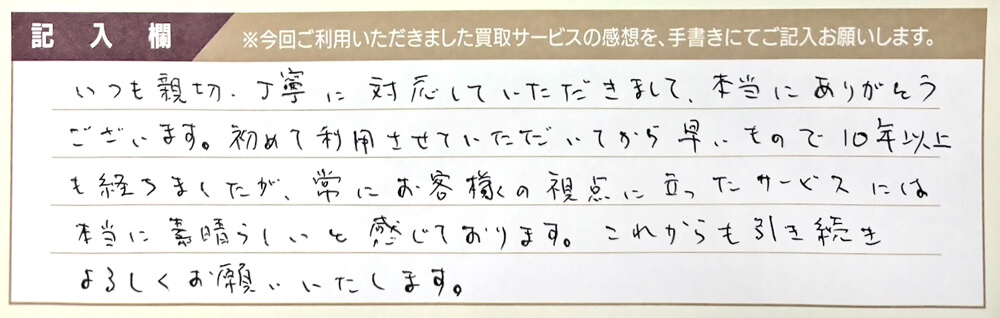 記入欄
※今回ご利用いただきました買取サービスの感想を、手書きにてご記入お願いします。
いつも親切、丁寧に対応していただきまして、本当にありがとう
ございます。初めて利用させていただいてから早いもので10年以上
も経ちましたが、常にお客様の視点に立ったサービスには
本当に素晴らしいと感じております。これからも引き続き
よろしくお願いいたします。